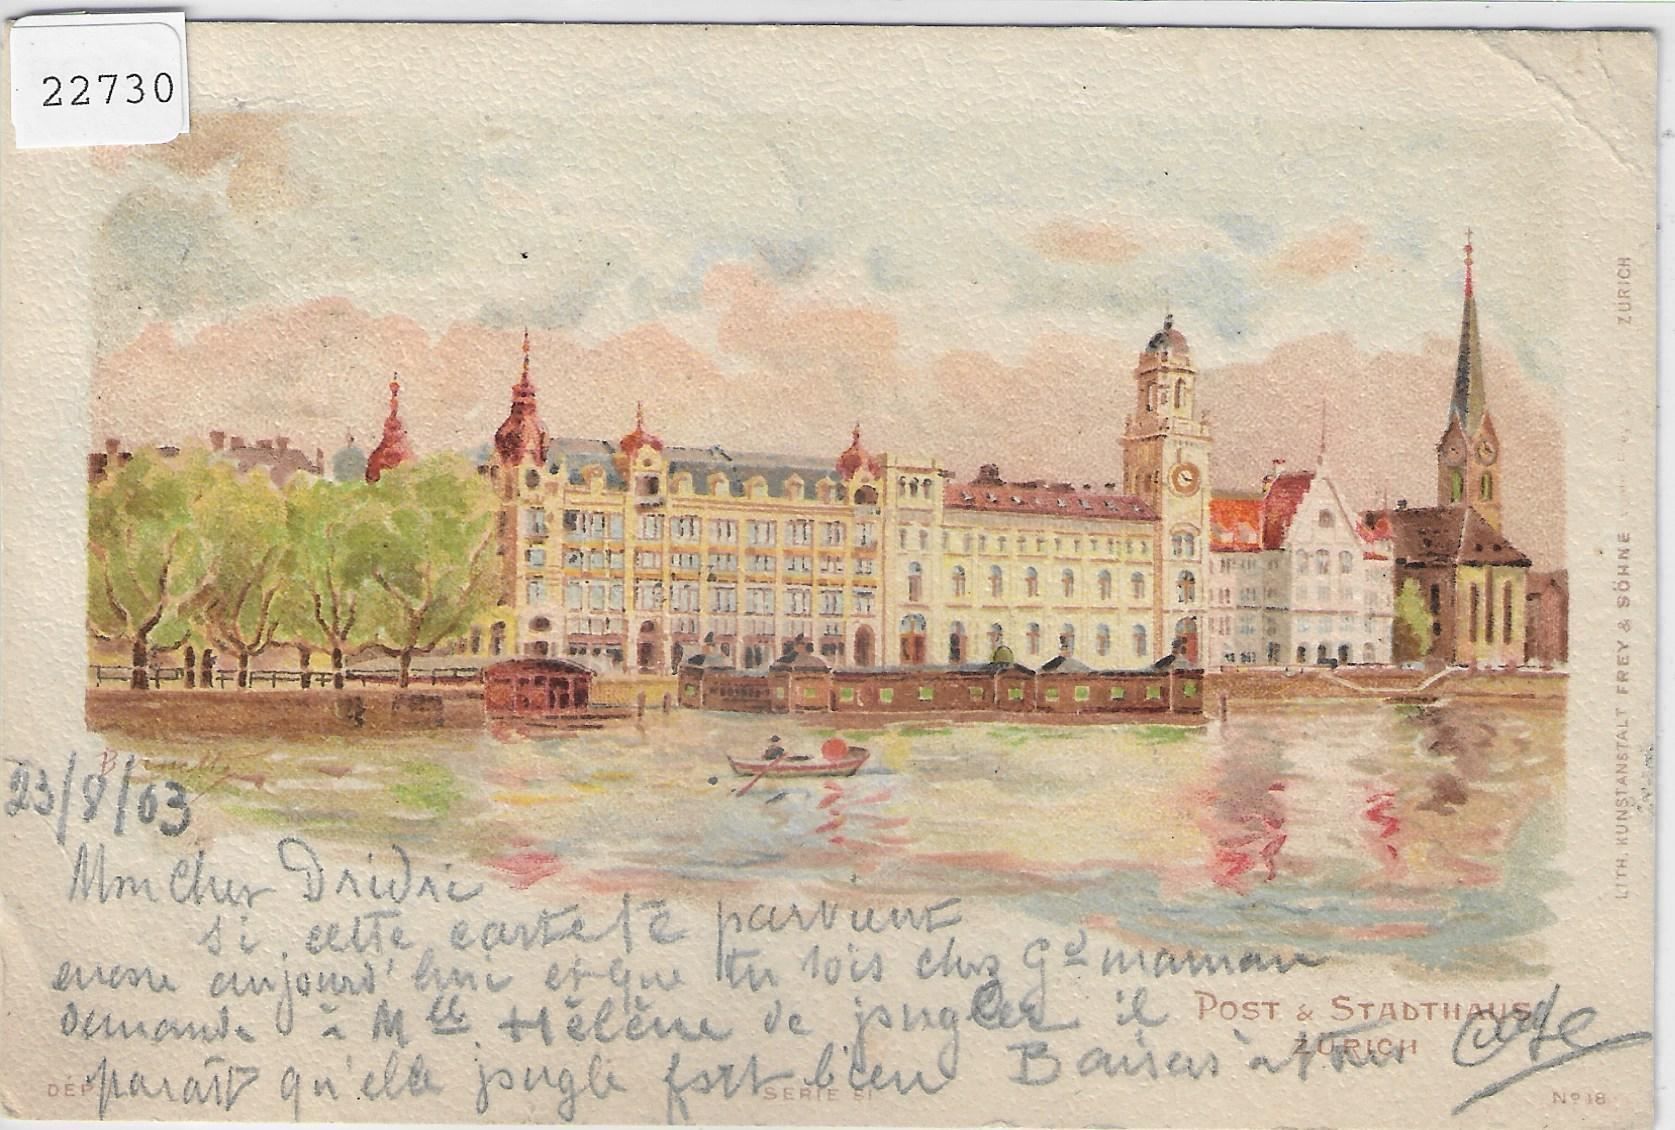 22730
ZÜRICH
LITH. KUNSTANSTALT FREY & SÖHNE
23/8/03
Mon cher Dridri
si cette carte te parvient
encore aujourd'hui et que tu sois chez Gd maman
demande à Mlle Hélène de jongler il
paraît qu'elle jongle fort bien Baisers à tous
POST & STADTHAUS
ZÜRICH
DÉP
SERIE SI
No 18